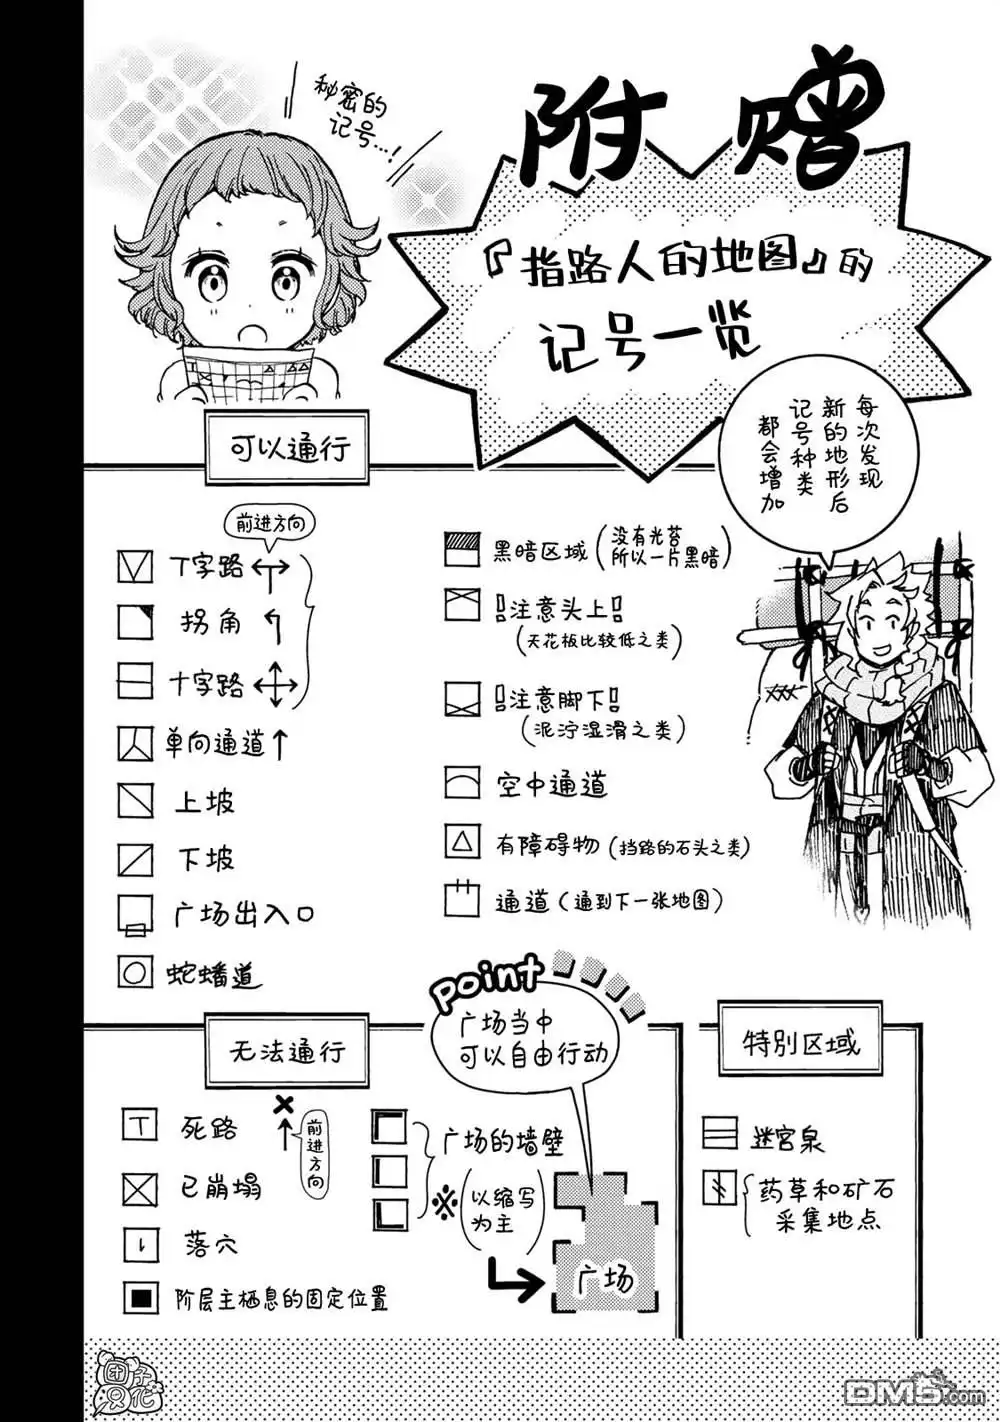 附赠
秘密的
记号…!
『指路人的地图』的
记号一览
每次发现
新的地形后
记号种类
都会增加
可以通行
前进方向
T字路
拐角
十字路
单向通道
上坡
下坡
广场出入口
蛇蟠道
黑暗区域（没有光苔
所以一片黑暗）
!注意头上!
（天花板比较低之类）
!注意脚下!
（泥泞湿滑之类）
空中通道
有障碍物（挡路的石头之类）
通道（通到下一张地图）
Point
广场当中
可以自由行动
无法通行
死路
前进方向
已崩塌
落穴
阶层主栖息的固定位置
广场的墙壁
※（以缩写
为主）
广场
特别区域
迷宫泉
药草和矿石
采集地点
团子
只化
DM5.com